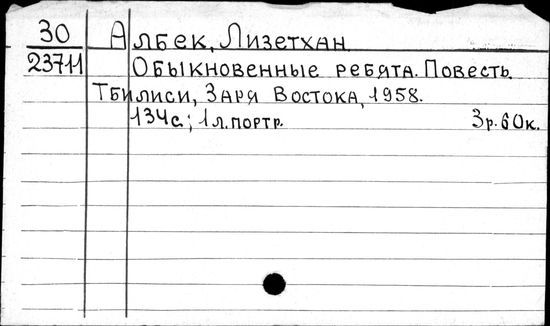 30 Албек, Лизетхан
23711 Обыкновенные ребята. Повесть.
Тбилиси, Заря Востока, 1958.
134с.; 1 л. портр. 3р. 60к.